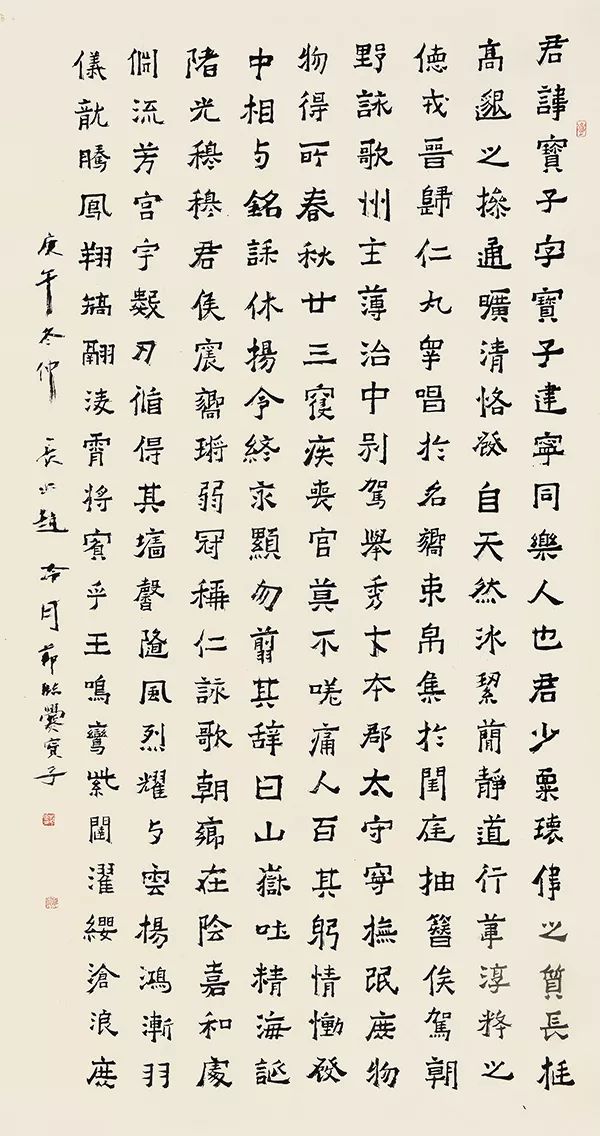 君諱寶子字寶子建寧同樂人也君少稟瓌偉之質長挺
高邈之操通曠清恪發自天然冰絜簡靜道行葦淳粹之
德戎晉歸仁九皋唱於名嚮束帛集於閨庭抽簪俟駕朝
野詠歌州主薄治中別駕舉秀才本郡太守寧撫氓庶物
物得所春秋廿三寢疾喪官莫不嗟痛人百其躬情慟發
中相与銘誄休揚令終永顯勿翦其辞曰山嶽吐精海誕
陼光穆穆君侯宸嚮鏘弱冠稱仁詠歌朝鄉在陰嘉和處
淵流芳宮宇數刃循得其墻馨隨風烈耀与雲揚鴻漸羽
儀龍騰鳳翔矯翮淩霄將賓乎王鳴鸞紫闥濯纓滄浪庶
庚午冬仲 長水趙冷月節臨爨寶子